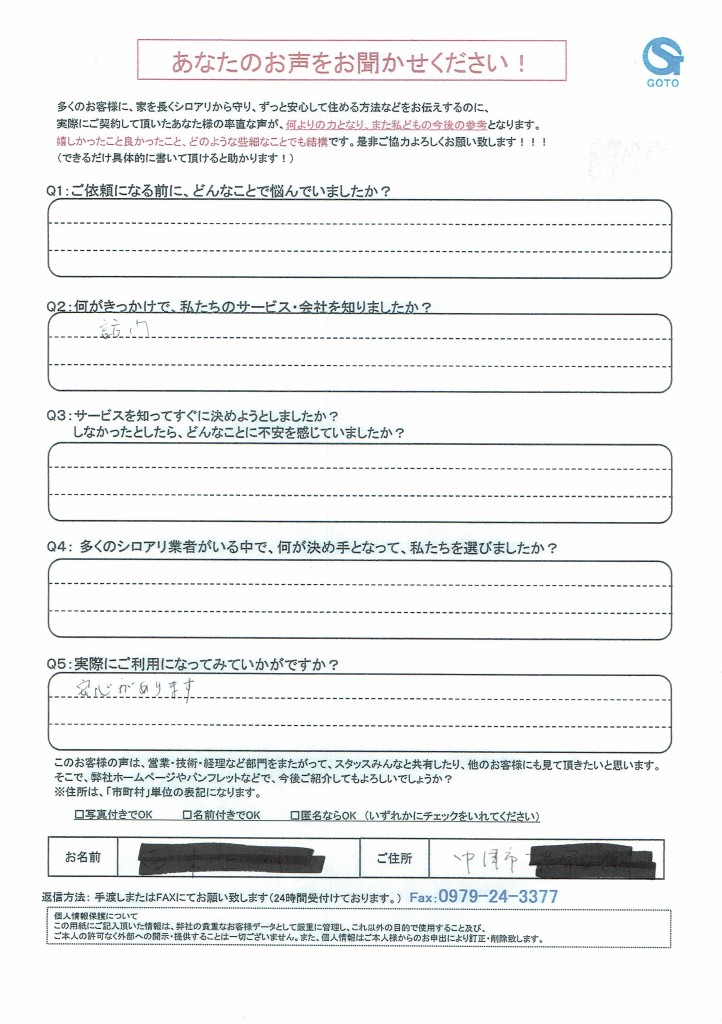 あなたのお声をお聞かせください！
GOTO
多くのお客様に、家を長くシロアリから守り、ずっと安心して住める方法などをお伝えするのに、
実際にご契約して頂いたあなた様の率直な声が、何よりの力となり、また私どもの今後の参考となります。
嬉しかったこと良かったこと、どのような些細なことでも結構です。是非ご協力よろしくお願い致します！！！
（できるだけ具体的に書いて頂けると助かります！）
Q1：ご依頼になる前に、どんなことで悩んでいましたか？
Q2：何がきっかけで、私たちのサービス・会社を知りましたか？
訪問
Q3：サービスを知ってすぐに決めようとしましたか？
しなかったとしたら、どんなことに不安を感じていましたか？
Q4： 多くのシロアリ業者がいる中で、何が決め手となって、私たちを選びましたか？
Q5：実際にご利用になってみていかがですか？
安心があります
このお客様の声は、営業・技術・経理など部門をまたがって、スタッスみんなと共有したり、他のお客様にも見て頂きたいと思います。
そこで、弊社ホームページやパンフレットなどで、今後ご紹介してもよろしいでしょうか？
※住所は、「市町村」単位の表記になります。
□写真付きでOK □名前付きでOK □匿名ならOK （いずれかにチェックをいれてください）
お名前 ご住所 中津市
返信方法： 手渡しまたはFAXにてお願い致します（24時間受付ております。） Fax：0979-24-3377
個人情報保護について
この用紙にご記入頂いた情報は、弊社の貴重なお客様データとして厳重に管理し、これ以外の目的で使用すること及び、
ご本人の許可なく外部への開示・提供することは一切ございません。また、個人情報はご本人様からのお申出により訂正・削除致します。